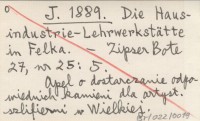 J. 1889. Die Haus-
industrie-Lehrwerkstätte
in Felka. - Zipser Bote
27, nr 25: 5.
Apel o dostarczanie odpo-
wiednich kamieni dla artyst.
szlifierni w Wielkiej.